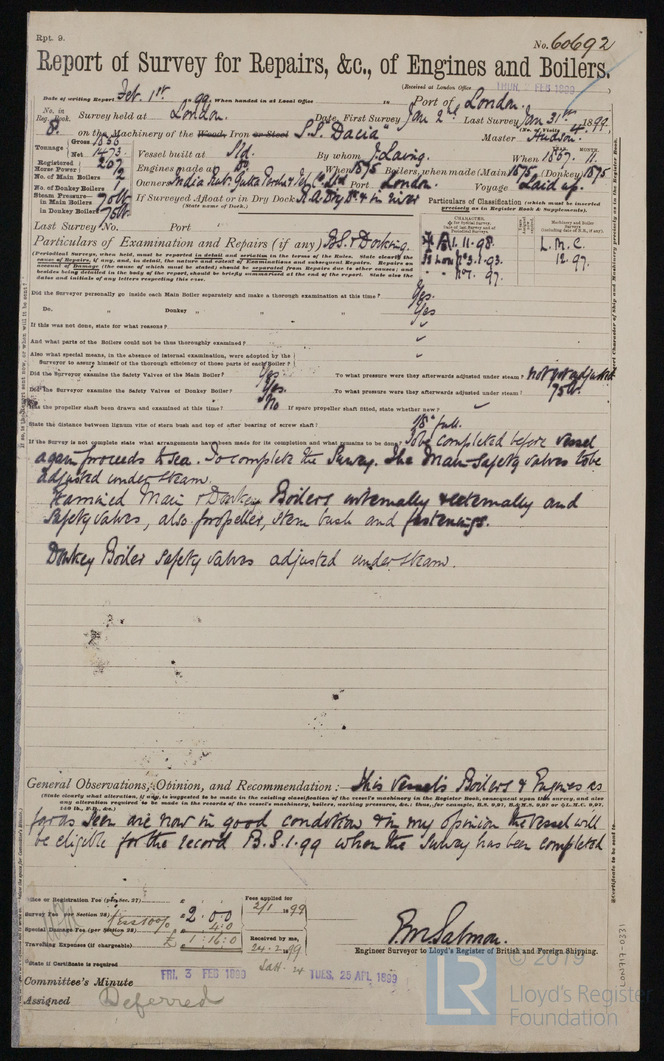 Rpt. 9.
No. 60692
Report of Survey for Repairs, &c., of Engines and Boilers.
(Received at London Office THUR. 2 FEB 1899
Date of writing Report Feb. 1st 99 When handed in at Local Office
Port of London
No. in Reg. Book. Survey held at London. Date, First Survey Jan 2nd Last Survey Jan 31st 1899
8. on the Machinery of the Wood, Iron or Steel S.S. "Dacia" (No. of Visits 4.)
Master Hudson
Tonnage Gross 1856
Net 1473
Vessel built at Sld. By whom J. Laing. When 1867. 11.
YEAR. MONTH.
Registered Horse Power 207
Engines made at Do. When 1875 Boilers, when made (Main) 1875 (Donkey) 1875
No. of Main Boilers 2
Owners India Rub. Gutta Percha & Tel. Co. Ld Port London. Voyage Laid up.
No. of Donkey Boilers 1
Steam Pressure in Main Boilers 70 lb.
in Donkey Boilers 75 lb.
If Surveyed Afloat or in Dry Dock R.A. Dry Dk & in river
(State name of Dock.)
Particulars of Classification (which must be inserted precisely as in Register Book & Supplements).
Last Survey No. Port
Particulars of Examination and Repairs (if any) B.S. & Docking.
B.S. 11.98.
Lon No. 3. 1. 93.
No. 1. 97.
L.M.C.
12.97.
(Periodical Surveys, when held, must be reported in detail and seriatim in the terms of the Rules. State clearly the cause of Repairs, if any, and, in detail, the nature and extent of Examinations and subsequent Repairs. Repairs on account of Damage (the cause of which must be stated) should be separated from Repairs due to other causes; and besides being detailed in the body of the report, should be briefly summarised at the end of the report. State also the dates and initials of any letters respecting this case.
Did the Surveyor personally go inside each Main Boiler separately and make a thorough examination at this time? Yes.
Do. " Donkey " " " " Yes
If this was not done, state for what reasons?
And what parts of the Boilers could not be thus thoroughly examined?
Also what special means, in the absence of internal examination, were adopted by the
Surveyor to assure himself of the thorough efficiency of those parts of each Boiler?
Did the Surveyor examine the Safety Valves of the Main Boiler? Yes. To what pressure were they afterwards adjusted under steam? not yet adjusted
Did the Surveyor examine the Safety Valves of Donkey Boiler? Yes. To what pressure were they afterwards adjusted under steam? 75 lb.
Has the propeller shaft been drawn and examined at this time? No If spare propeller shaft fitted, state whether new?
State the distance between lignum vitæ of stern bush and top of after bearing of screw shaft? 1/8" full.
If the Survey is not complete state what arrangements have been made for its completion and what remains to be done? To be completed before vessel
again proceeds to sea. To complete the Survey. The Main Safety valves to be
adjusted under steam.
Examined Main & Donkey Boilers internally & externally and
Safety valves, also propeller, stern bush and fastenings.
Donkey Boiler safety valves adjusted under steam.
General Observations, Opinion, and Recommendation:— This vessel's Boilers & Engines as
(State clearly what alteration, if any, is suggested to be made in the existing classification of the vessel's machinery in the Register Book, consequent upon this survey, and also
any alteration required to be made in the records of the vessel's machinery, boilers, working pressures, &c.; thus, for example, B.S. 9,97, B.&M.S. 9,97 or L.M.C. 9,97,
140 lb., F.D., &c.)
far as seen are now in good condition & in my opinion the vessel will
be eligible for the record B.S. 1.99 when the Survey has been completed
Office or Registration Fee (per Sec. 27)
Survey Fee (per Section 28) less 10% £ 2.0.0
Special Damage Fee (per Section 28) 4.0
Travelling Expenses (if chargeable) £ 1.16.0
Fees applied for
2/1 1899
Received by me,
24.2.1899
F. M. Salmon.
Engineer Surveyor to Lloyd's Register of British and Foreign Shipping.
State if Certificate is required
Committee's Minute FRI. 3 FEB 1899 TUES. 25 APL 1899
Assigned Deferred
LON717-0331
© 2019
LR
Lloyd's Register
Foundation